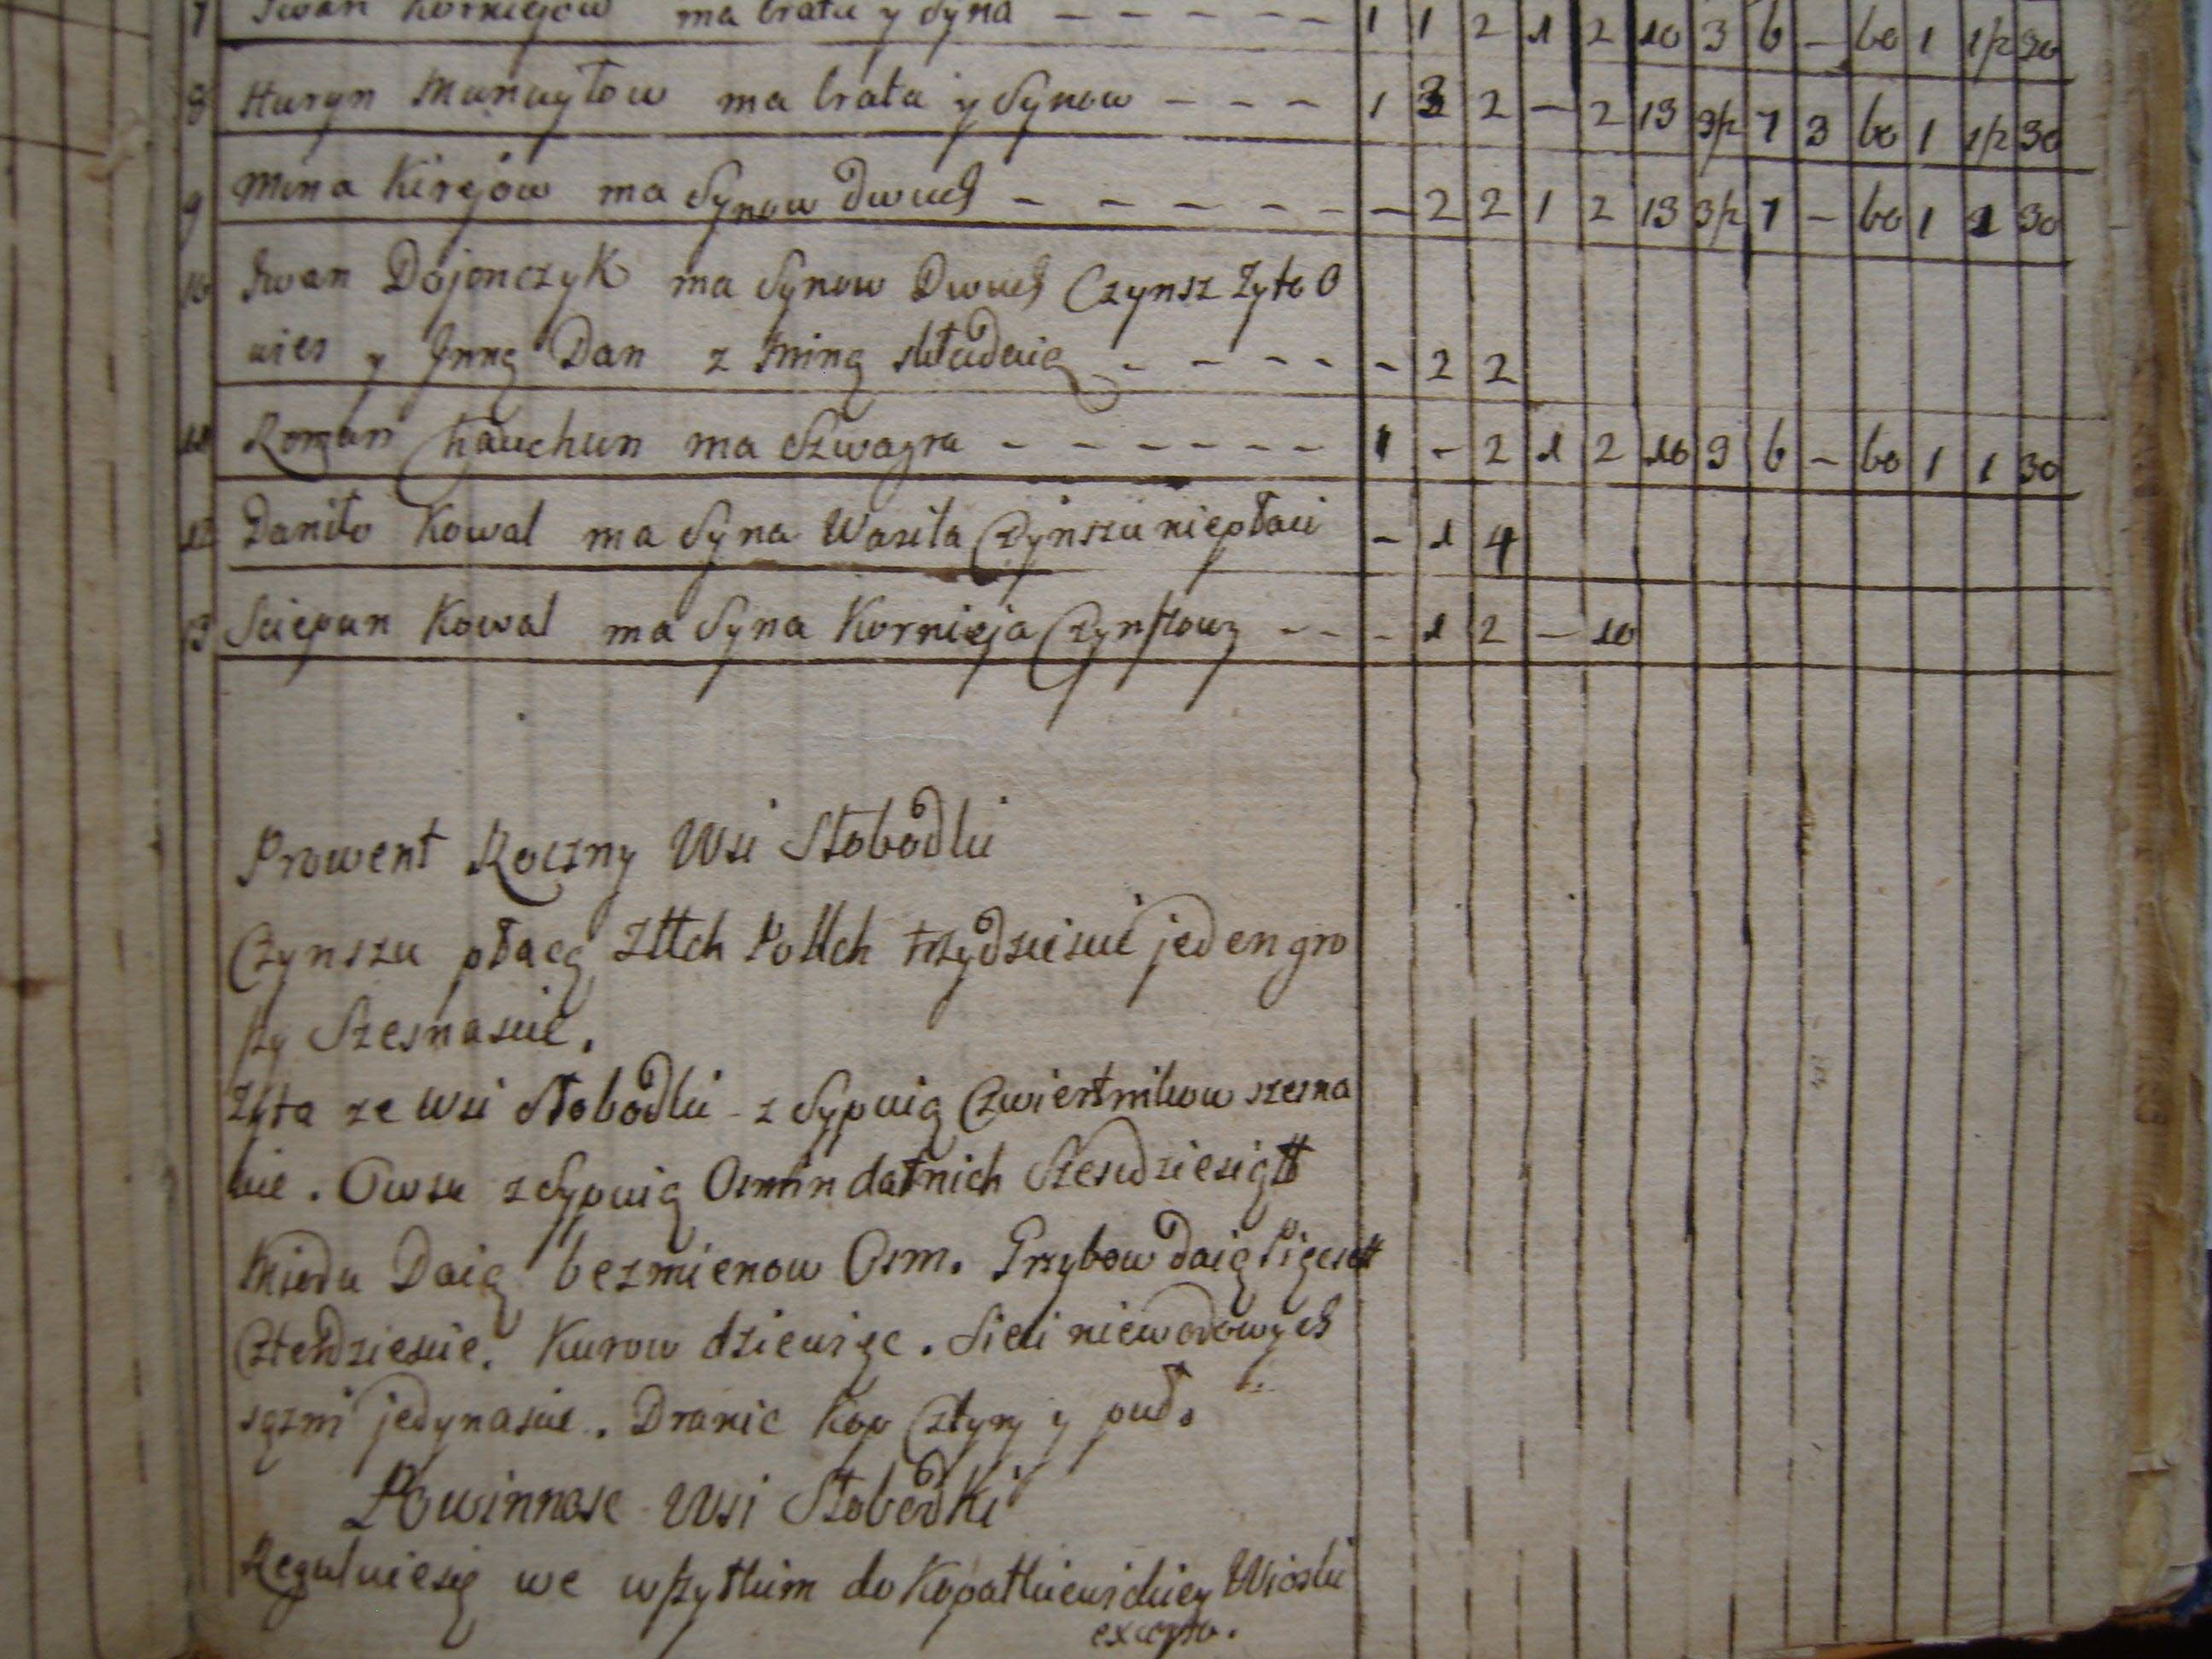 7 Iwan Korniejow ma brata y Syna - - - - - - 1 1 2 1 2 10 3 6 - 60 1 1/2 30
8 Huryn Manuyłow ma brata y Synow - - - 1 3 2 - 2 13 3/2 7 3 60 1 1/2 30
9 Mina Kirejow ma Synow dwuch - - - - - - - 2 2 1 2 13 3/2 7 - 60 1 1 30
10 Iwan Dojonczyk ma Synow Dwuch Czynsz Żyto O
wies y Inną Dan z Miną składaią - - - - - 2 2
11 Roman hauchun ma Szwagra - - - - - - 1 - 2 1 2 10 3 6 - 60 1 1 30
12 Daniło Kowal ma Syna Wasila Czynszu niepłaci - 1 4
13 Sciepan Kowal ma Syna Kornieja Czynszowy - - - 1 2 - 10
Prowent Roczny Wsi Słobodki
Czynszu płacą Złłch Pollch trzydziesci jeden gro
szy Szesnascie.
Żyta ze wsi Słobodki zsypuią Czwiertnikow szesna
scie. Owsa zsypuią Osmin datnich Szescdziesiątt
Miodu Daią bezmienow Osm. Grzybow daią Pięcsett
Czterdziescie. Kurow dziewięc. Sieci niewodowych
sązni jedynascie. Dranic Kop Cztyry y puł.
Powinnosc Wsi Słobodki
Regulniesię we wszytkim do Kopatkiewickiey Wioski
excepto.